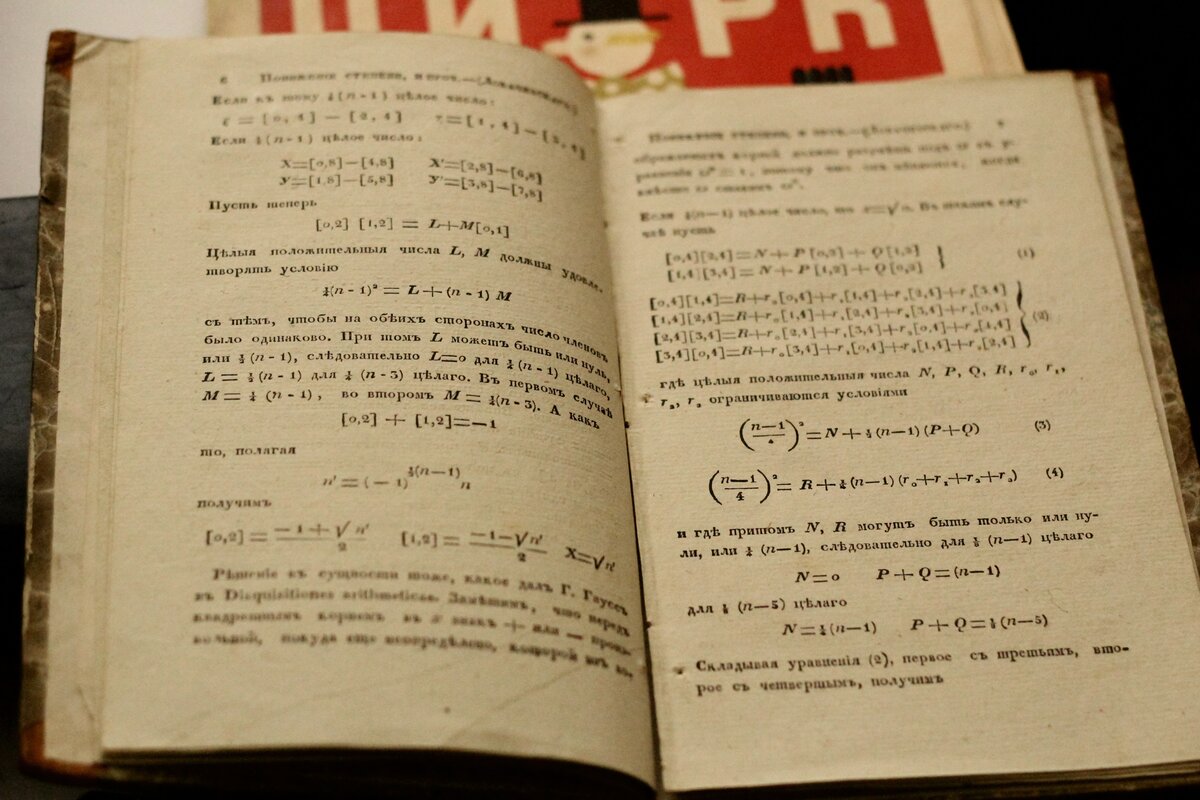 ЦИРК
6 Понижение степени, и проч.—(Лобачевскаго)
Если къ тому ¼(n-1) цѣлое число:
ξ = [0,4] — [2,4] τ = [1,4] — [3,4]
Если ⅛(n-1) цѣлое число:
X=[0,8]—[4,8] X'=[2,8]—[6,8]
У=[1,8]—[5,8] У'=[3,8]—[7,8]
Пусть теперь
[0,2] [1,2] = L+M[0,1]
Цѣлыя положительныя числа L, M должны удовле-
творять условію
¼(n-1)² = L+(n-1) M
съ тѣмъ, чтобы на обѣихъ сторонахъ число членовъ
было одинаково. При томъ L можетъ быть или нуль,
или ½ (n-1), слѣдовательно L=0 для ¼ (n-1) цѣлаго,
L = ½ (n-1) для ¼ (n-3) цѣлаго. Въ первомъ случаѣ
M = ¼ (n-1), во второмъ M = ¼(n-3). А какъ
[0,2] + [1,2]=—1
то, полагая
n' = (—1)^½(n—1) n
получимъ
[0,2] = (—1+√n')/2 [1,2] = (—1—√n')/2 X=√n'
Рѣшеніе въ сущности тоже, какое далъ Г. Гауссъ
въ Disquisitiones arithmeticae. Замѣтимъ, что передъ
квадратнымъ корнемъ въ x знакъ + или — произ-
вольной, покуда еще неопредѣлено, которой изъ
Понижение степени, и проч.—(Лобачевскаго) 7
Если ¼(n—1) цѣлое число, то x=√n. Въ такомъ слу-
чаѣ пусть
[0,4][2,4]=N+P[0,2]+Q[1,2]
[1,4][3,4]=N+P[1,2]+Q[0,2] } (1)
[0,4][1,4]=R+r₀[0,4]+r₁[1,4]+r₂[2,4]+r₃[3,4]
[1,4][2,4]=R+r₀[1,4]+r₁[2,4]+r₂[3,4]+r₃[0,4]
[2,4][3,4]=R+r₀[2,4]+r₁[3,4]+r₂[0,4]+r₃[1,4]
[3,4][0,4]=R+r₀[3,4]+r₁[0,4]+r₂[1,4]+r₃[2,4] } (2)
гдѣ цѣлыя положительныя числа N, P, Q, R, r₀, r₁,
r₂, r₃ ограничиваются условіями
((n—1)/4)² = N+½(n—1)(P+Q) (3)
((n—1)/4)² = R+¼(n—1)(r₀+r₁+r₂+r₃) (4)
и гдѣ притомъ N, R могутъ быть только или ну-
ли, или ¼ (n—1), слѣдовательно для ⅛ (n—1) цѣлаго
N=0 P+Q=⅛(n—1)
для ⅛ (n—5) цѣлаго
N=¼(n—1) P+Q=⅛(n—5)
Складывая уравненія (2), первое съ третьимъ, вто-
рое съ четвертымъ, получимъ